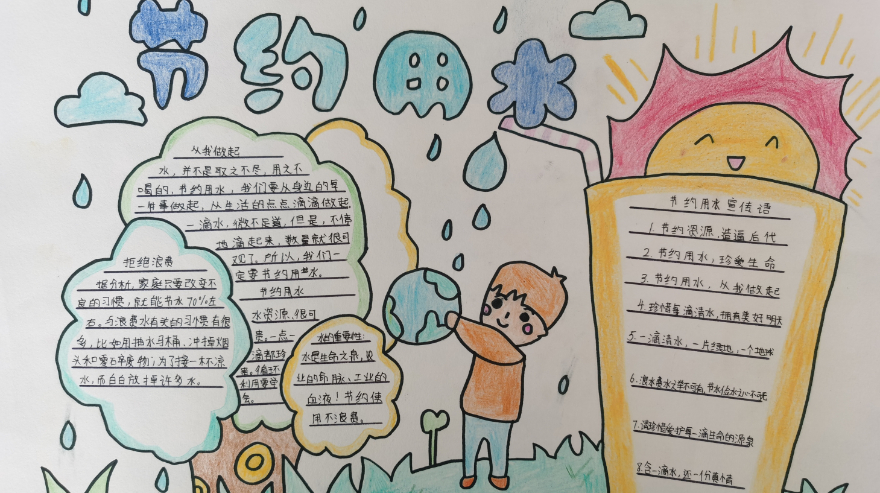 节约用水
从我做起
水，并不是取之不尽，用之不
竭的，节约用水，我们要从身边的每
一件事做起，从生活的点点滴滴做起
一滴水，微不足道，但是，不停
地滴起来，数量就很可
观了，所以，我们一
定要节约用水。
节约用水
水资源很可
贵，一点一
滴都珍
惜，循环
利用要学
会。
拒绝浪费
据分析，家庭只要改变不
良的习惯，就能节水70%左
右。与浪费水有关的习惯有很
多，比如用抽水马桶，冲掉烟
头和零碎废物；为了接一杯凉
水，而白白放掉许多水。
水的重要性
水是生命之泉，农
业的命脉、工业的
血液！节约使
用不浪费。
节约用水宣传语
1.节约资源，造福后代
2.节约用水，珍爱生命
3.节约用水，从我做起
4.珍惜每滴清水，拥有美好明天
5.一滴清水，一片绿地，一个地球
6.浪水费水之举不可有，节水俭水之心不可无
7.请珍惜爱护每一滴生命的源泉
8.含一滴水，还一份真情